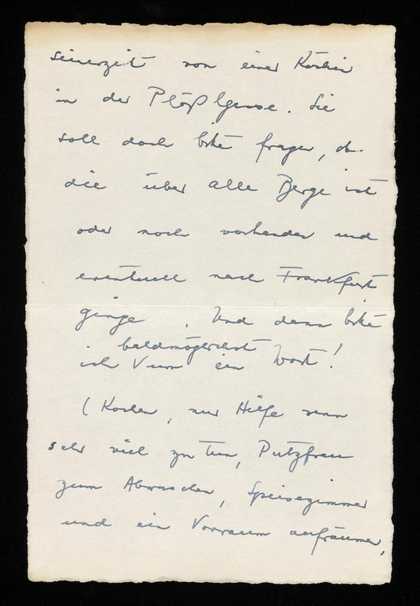 seinerzeit von einer Köchin
in der Plößlgasse. Sie
soll doch bitte fragen, ob
die über alle Berge ist
oder noch vorhanden und
eventuell nach Frankfurt
ginge. Und dann bitte
baldmöglichst
ich Vum ein Wort!
(Kochen, nur Hilfe wenn
sehr viel zu tun, Putzfrau
zum Abwaschen, Speisezimmer
und ein Vorraum aufräumen,